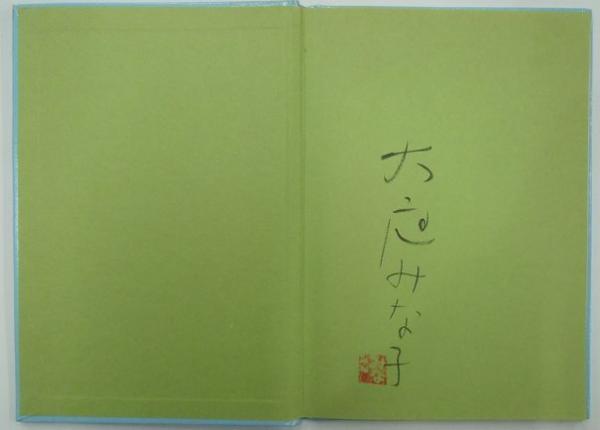 大庭みな子